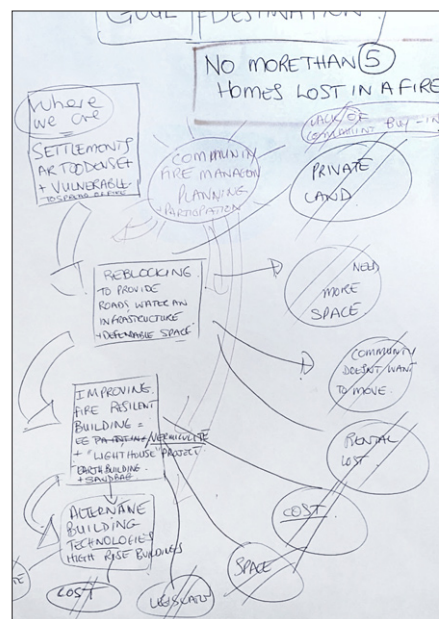 GOAL / DESTINATION
NO MORE THAN 5
HOMES LOST IN A FIRE
Where
we are
SETTLEMENTS
AR TOO DENSE
+ VULNERABLE
LACK OF
COMMUNITY BUY-IN
COMMUNI
FIRE MANAGEM
PLANNING
+ PARTICIPATION
PRIVATE
LAND
REBLOCKING
TO PROVIDE
ROADS WATER AN
INFRASTRUCTURE
+ DEFENDABLE SPACE
NEED
MORE
SPACE
COMMUNITY
DOESN'T WANT
TO MOVE.
IMPROVING
FIRE RESILENT
BUILDING =
EG VERMICULITE
+ "LIGHTHOUSE" PROJECT
EARTH BUILDING
+ SANDBAG
RENTAL
LOST
COST
ALTERNATVE
BUILDING
TECHNOLOGIES
HIGH RISE BUILDINGS
SPACE
COST